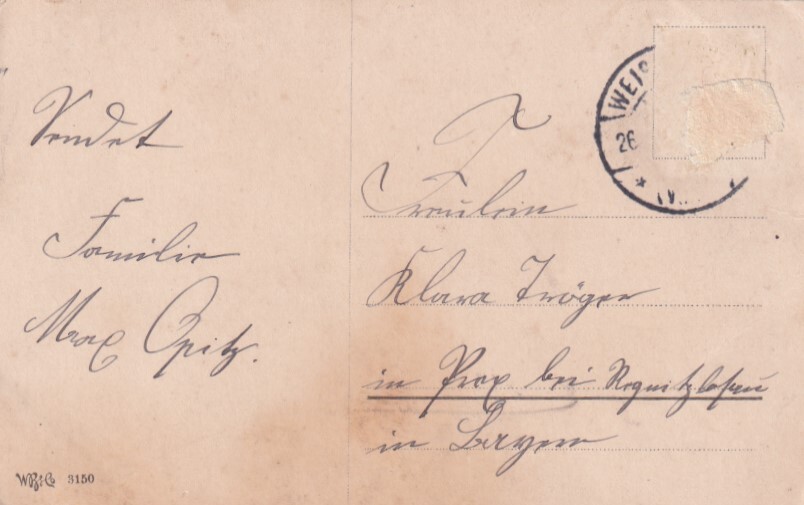 Sendet
Familie
Max Opitz.
Fräulein
Klara Tröger
in Prex bei Regnitzlosau
in Bayern
WEIS
26
3150